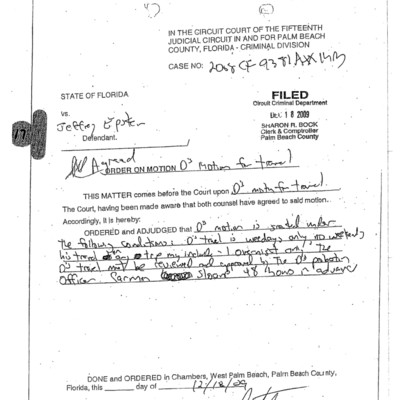 IN THE CIRCUIT COURT OF THE FIFTEENTH
JUDICIAL CIRCUIT IN AND FOR PALM BEACH
COUNTY, FLORIDA - CRIMINAL DIVISION
CASE NO:
STATE OF FLORIDA
vs.
Jeffrey Epstein
Defendant.
FILED
Circuit Criminal Department
DEC 18 2009
SHARON R. BOCK
Clerk & Comptroller
Palm Beach County
17
Agreed
ORDER ON MOTION D's Motion for travel
THIS MATTER comes before the Court upon D's motn for travel
The Court, having been made aware that both counsel have agreed to said motion.
Accordingly, it is hereby:
ORDERED and ADJUDGED that D's motion is granted under
the following conditions: D's travel is weekdays only, no weekends
his travel on any trip may include 1 overnight only. The
D's travel must be reviewed and approved by the D's probation
Officer Carmen Sloan 48 hours in advance
DONE and ORDERED in Chambers, West Palm Beach, Palm Beach County,
Florida, this day of 12/18/09